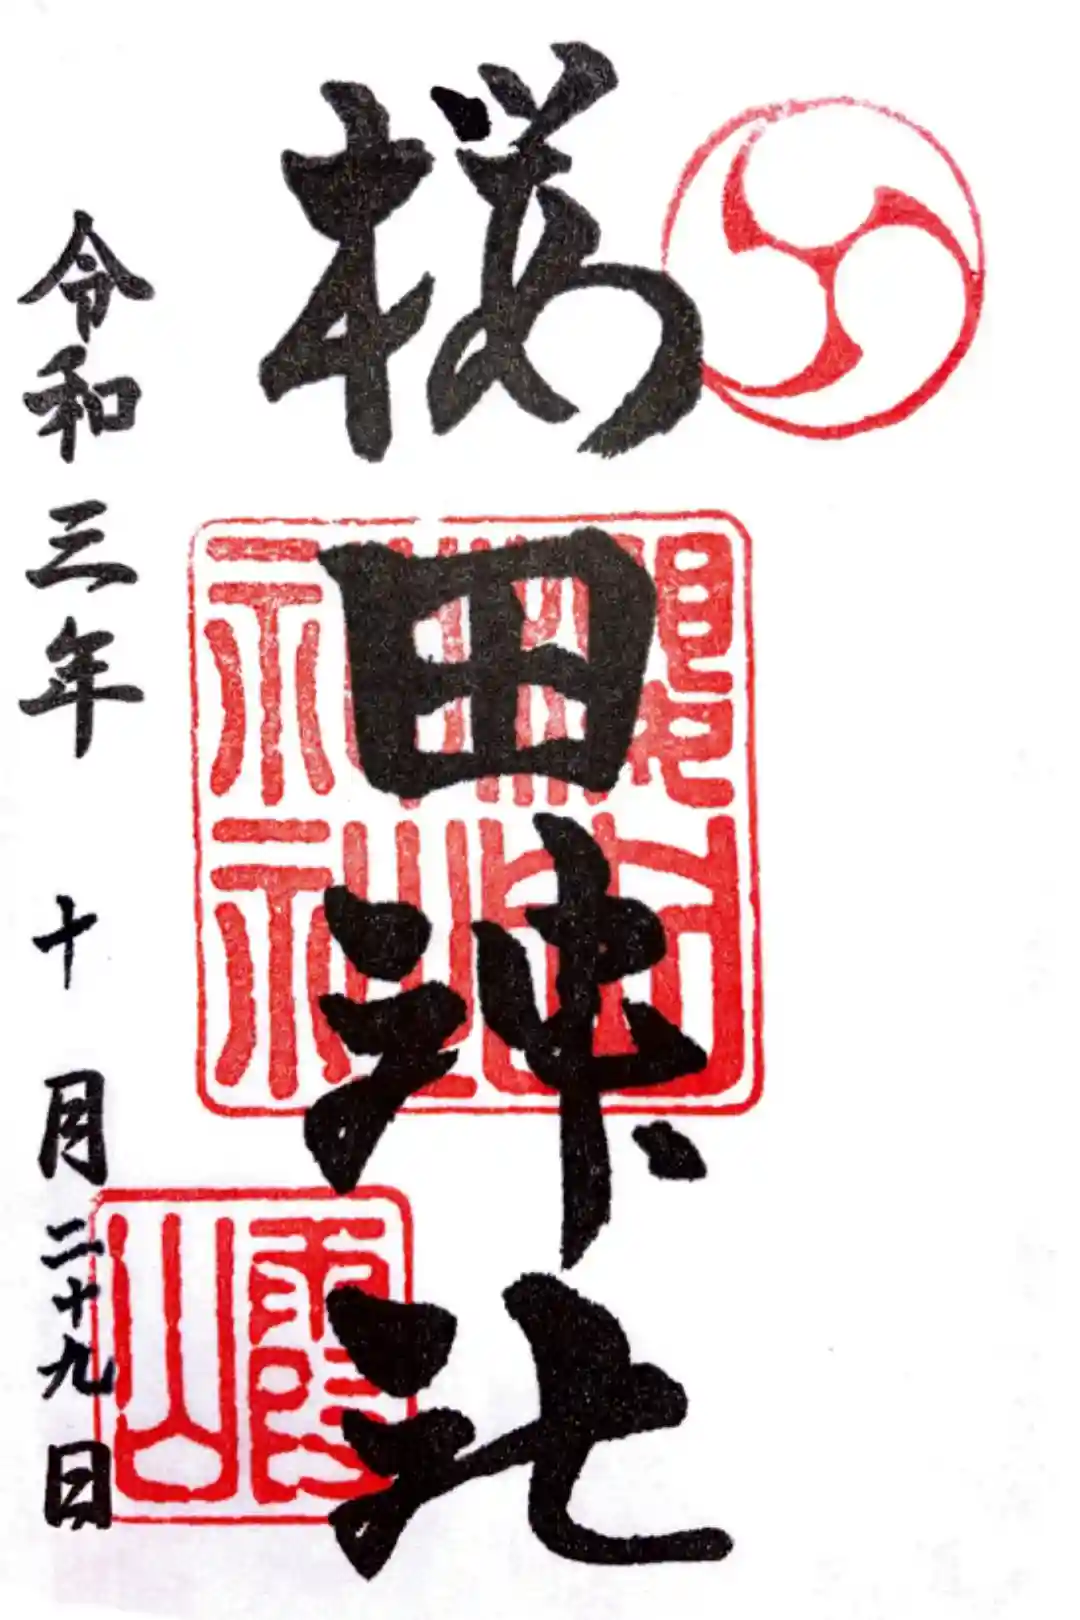 桜田神社
令和三年 十月二十九日
霞山